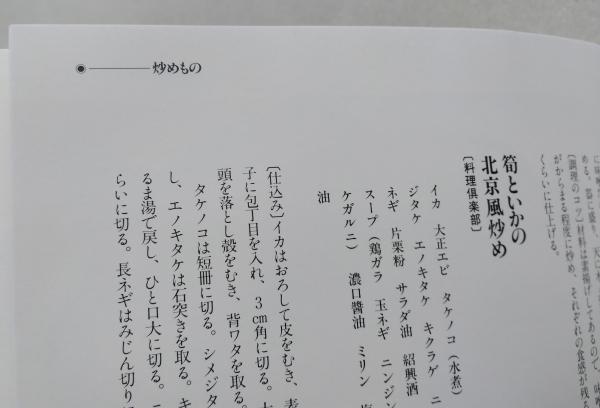 炒めもの
〔調理のコツ〕材料は素揚げしてあるので、味
がからまる程度に炒め、それぞれの食感が残る
くらいに仕上げる。
筍といかの
北京風炒め
〔料理倶楽部〕
イカ 大正エビ タケノコ（水煮）
ジタケ エノキタケ キクラゲ ニ
ネギ 片栗粉 サラダ油 紹興酒
スープ（鶏ガラ 玉ネギ ニンジン
ケガルニ） 濃口醤油 ミリン 塩
油
〔仕込み〕イカはおろして皮をむき、表
子に包丁目を入れ、3㎝角に切る。大
頭を落とし殻をむき、背ワタを取る。
タケノコは短冊に切る。シメジタ
し、エノキタケは石突きを取る。キ
るま湯で戻し、ひと口大に切る。ニ
らいに切る。長ネギはみじん切り